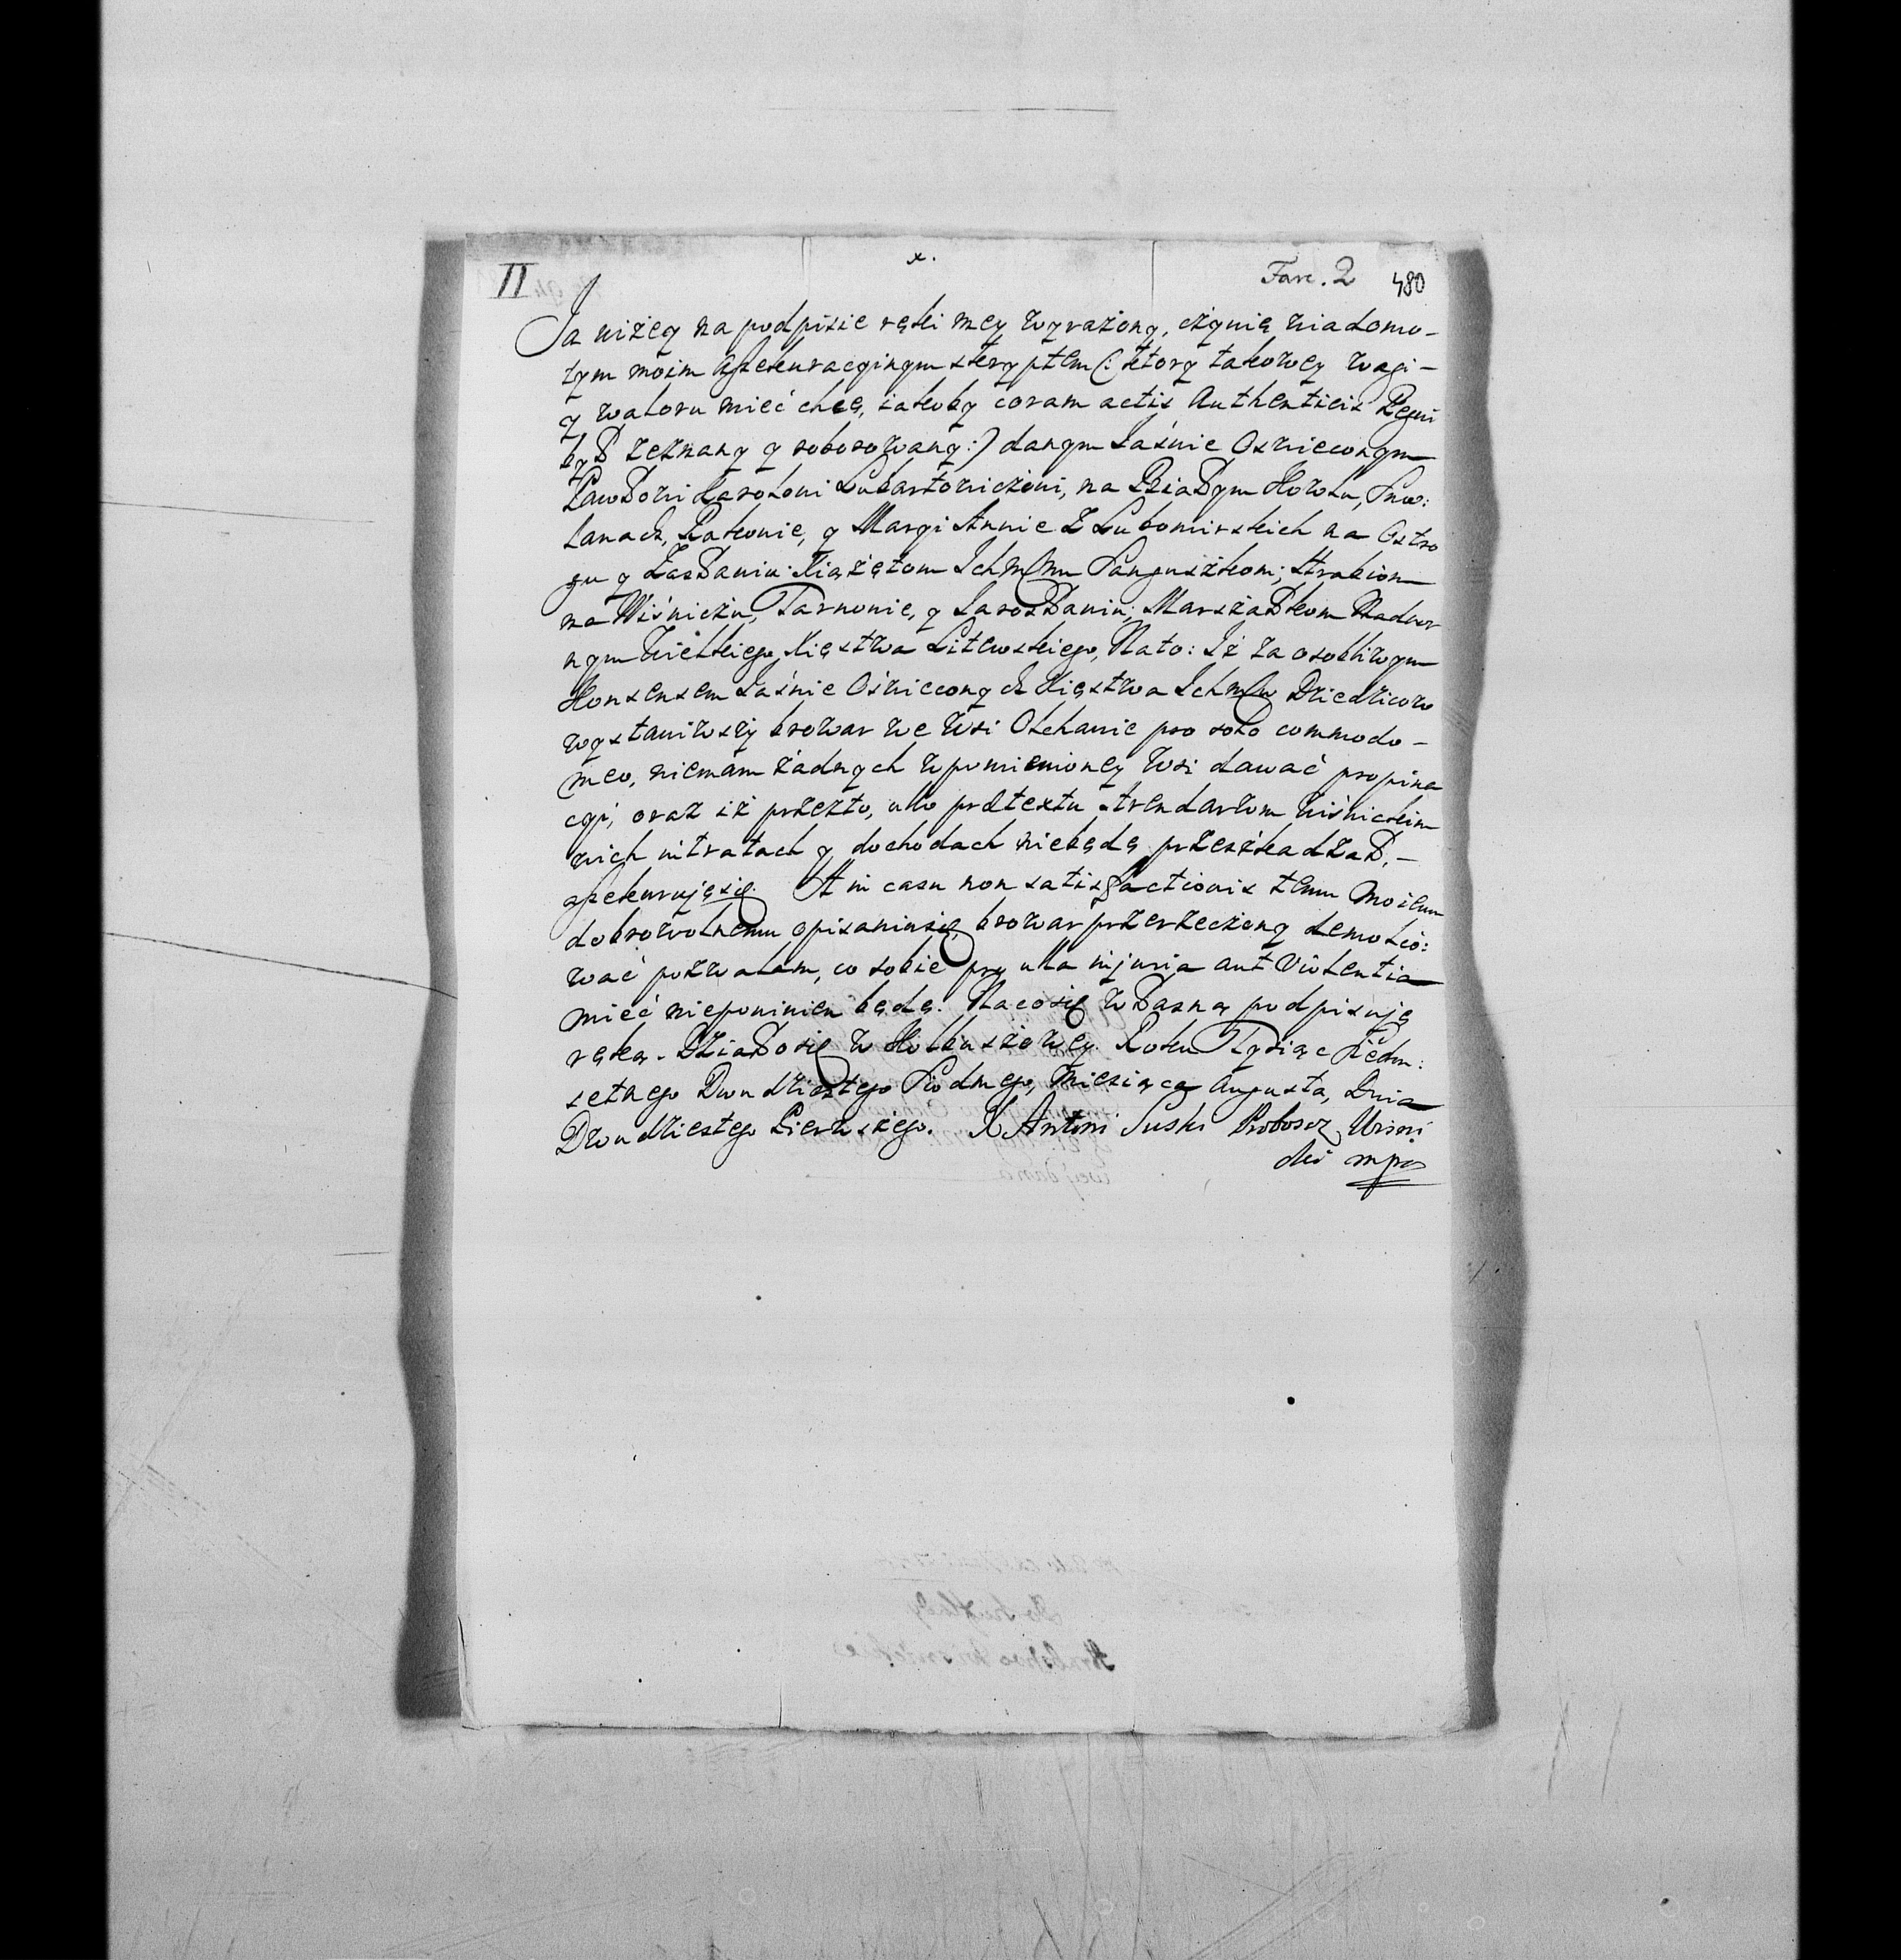 II x. Fasc. 2 480
Ja niżey na podpisie ręki mey wyrażony, czynię wiadomo –
tym moim Assekuracyinym skryptem (: ktory takowey wagi –
y waloru mieć chcę, iakoby coram actis Authenticis Regni
był zeznany y roborowany :) danym Jaśnie Oswieconym
Pawłowi Karolowi Lubartowiczowi, na Białym Kowlu, Smo:
lanach, Rakowie, y Maryi Annie z Lubomirskich na Ostro
gu y Zasławiu Xiążętom Ichmm Sanguszkom; Hrabiom
na Wiśniczu, Tarnowie, y Jarosławiu; Marszałkom Nadwor
nym Wielkiego Xięstwa Litewskiego, Na to: Iż za osobliwym
Konsensem Jaśnie Oświeconych Xięstwa Ichmm Dziedzicow
wystawiwszy browar we Wsi Olchawie pro solo commodo –
meo, niemam żadnych w pomienioney wsi dawać propina
cyi, oraz iż przezto, ullo prætextu Arendarzom Wiśnickim
wich intratach y dochodach niebędę przeszkadzał, –
assekuruję się. A in casu non satisfactionis temu moiemu
dobrowolnemu opisaniu się, browar przerzeczony demolio:
wać pozwalam, co sobie pro ulla injuria aut Violentia
mieć niepowinien będę. Na co się własną podpisuję
ręką. Działo się w Kolbuszowey. Roku Tysiąc siedm:
setnego Dwudziestego Siodmego, Miesiąca Augusta, Dnia
Dwudziestego Pierwszego. X Antoni Suski Proboscz Wisni
cki mpr